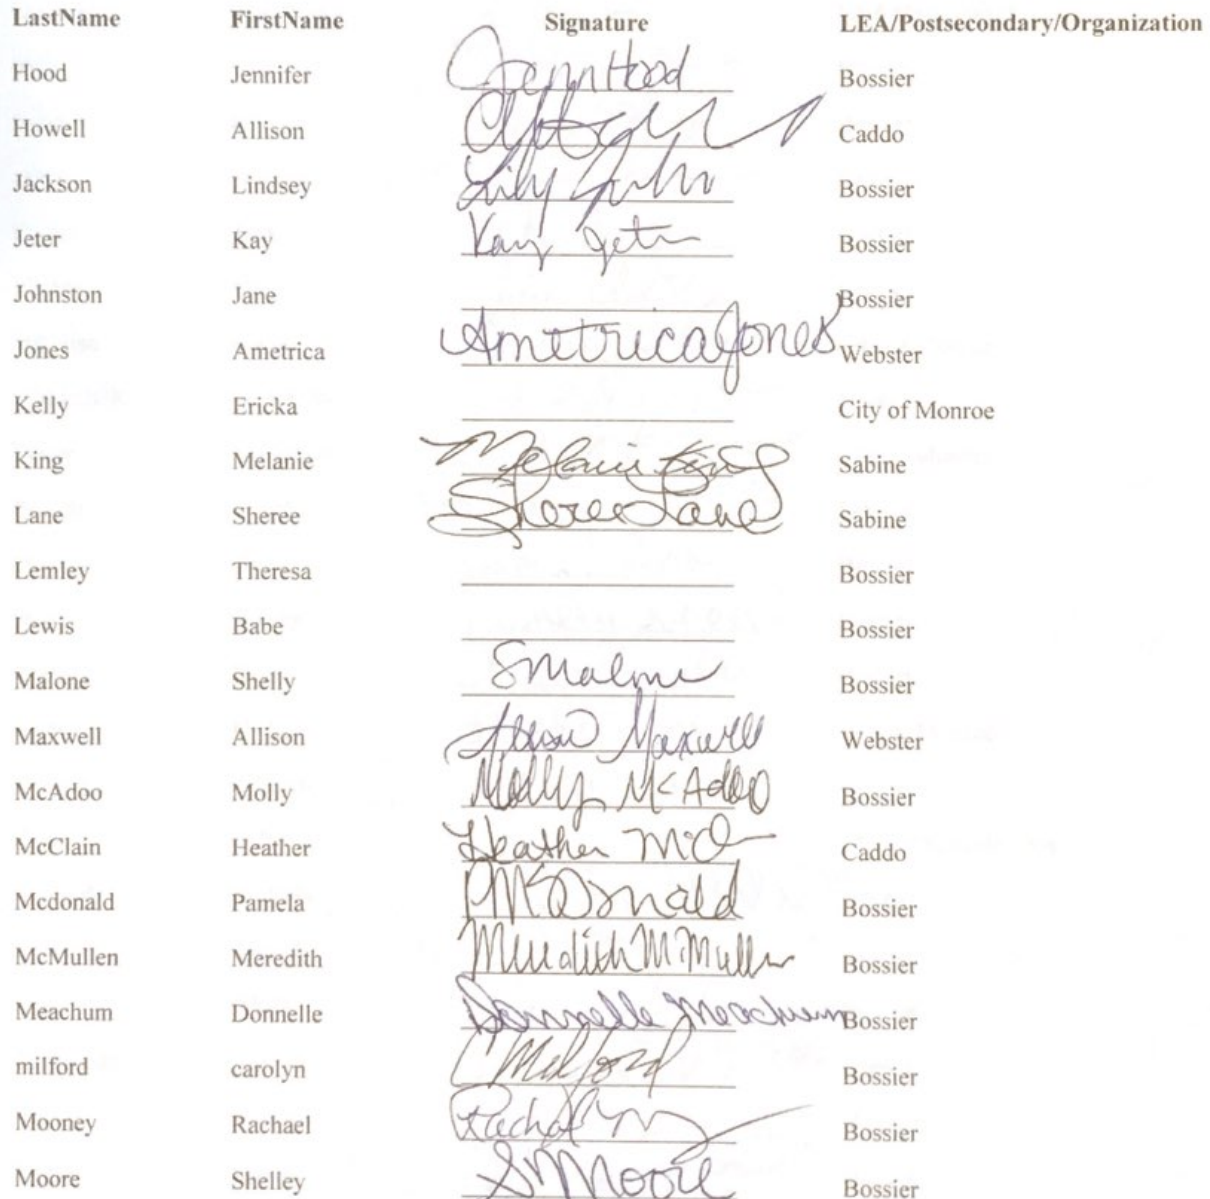 LastName FirstName Signature LEA/Postsecondary/Organization
Hood Jennifer Jenn Hood Bossier
Howell Allison Caddo
Jackson Lindsey Bossier
Jeter Kay Kay Jeter Bossier
Johnston Jane Bossier
Jones Ametrica Ametrica Jones Webster
Kelly Ericka City of Monroe
King Melanie Melanie King Sabine
Lane Sheree Sheree Lane Sabine
Lemley Theresa Bossier
Lewis Babe Bossier
Malone Shelly SMalone Bossier
Maxwell Allison Allison Maxwell Webster
McAdoo Molly Molly McAdoo Bossier
McClain Heather Heather McC Caddo
Mcdonald Pamela PMcDonald Bossier
McMullen Meredith Meredith McMullen Bossier
Meachum Donnelle Donnelle Meachum Bossier
milford carolyn C Milford Bossier
Mooney Rachael Bossier
Moore Shelley SMoore Bossier